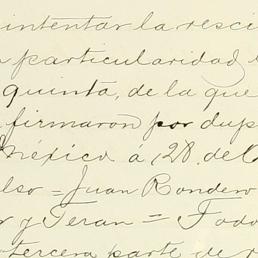 intentar la resci
particularidad
quinta, de la que
firmaron por dup
México á 128. de
lso = Juan Rondero
r y Teran = Todo
tercera parte de